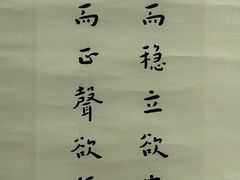 而穩立欲
而正聲欲